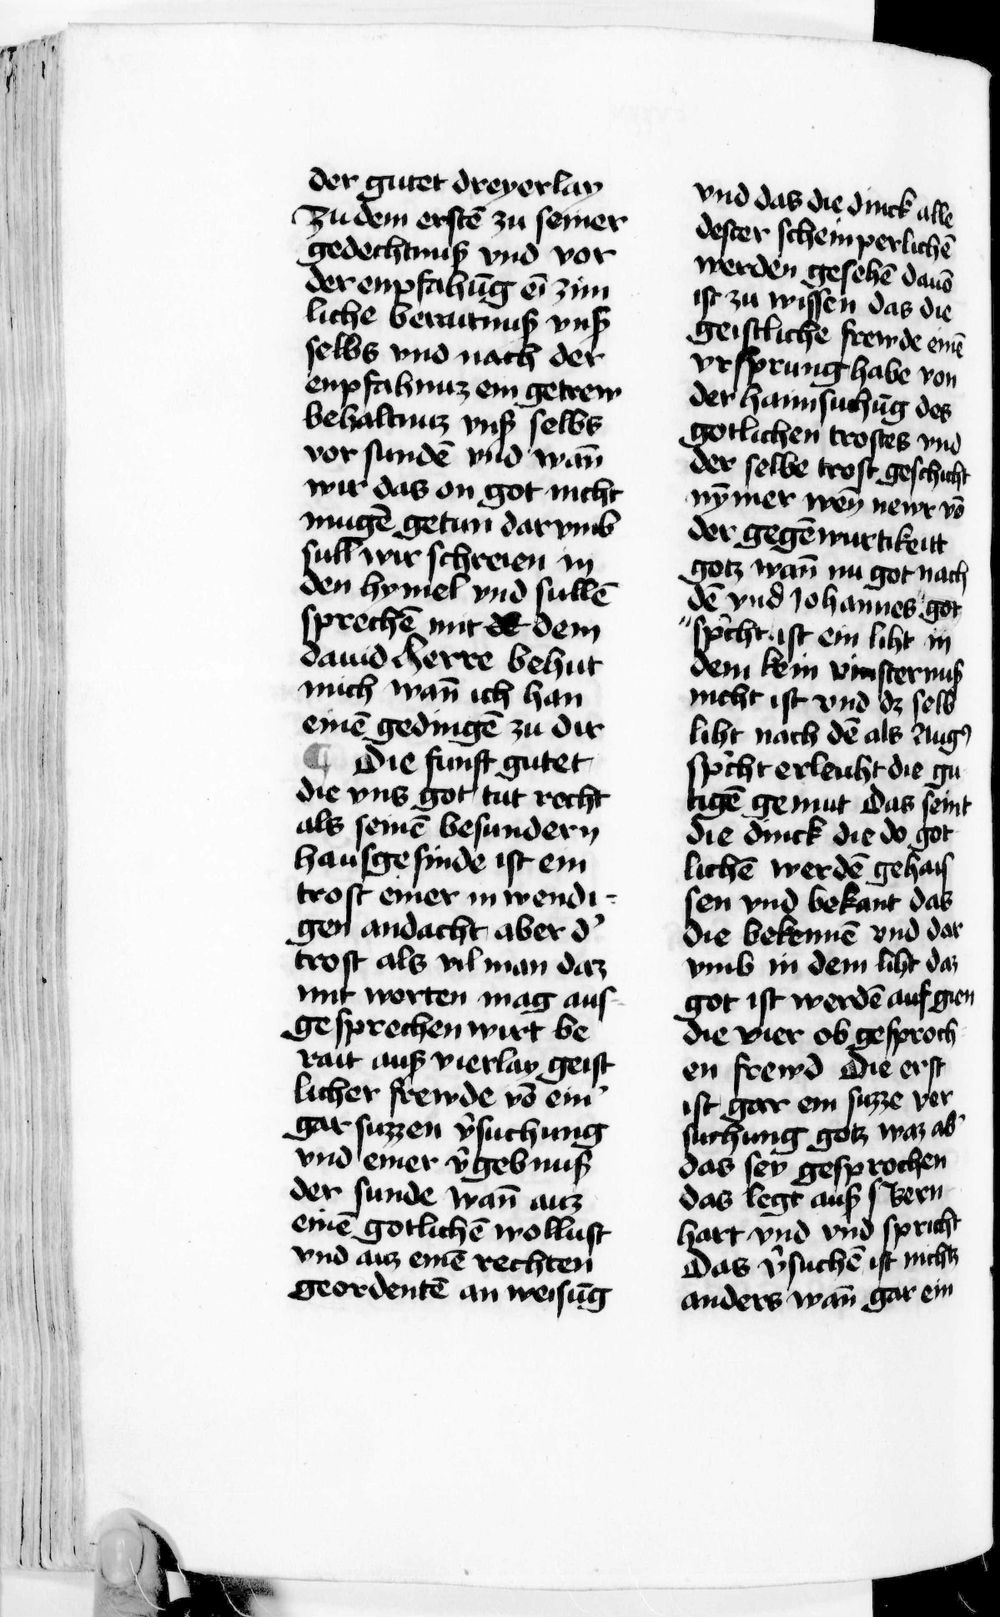 der gutet dreyerlay
Zu dem erstē zu seiner
gedechtnuß vnd vor
der enpfahūg eī zim
liche beraitnuß vnß
selbs vnd nach der
enpfahnuz ein getrew
behaltnuz vnß selbs
vor sundē vnd wan̄
wir das on got nicht
mugē getun darvmb
sull wir schreien in
den hymel vnd sullē
sprechē mit dem
dauid Herre behut
mich wan̄ ich han
einē gedingē zu dir
¶ Die funft gutet
die vns got tut recht
als seinē besundern
hausgesinde ist ein
trost einer inwendi-
gen andacht aber d'
trost als vil man daz
mit worten mag aus-
gesprechen wirt be
rait auß vierlay geist
licher frewde vō ein'
gar suzzen v̄suchung
vnd einer v̄gebnuß
der sunde wan̄ auz
einē gotlichē wollust
vnd auz einē rechten
geordentē an weisūg
vnd das die dinck alle
dester scheinperlichē
werden gesehē dauō
ist zu wissen das die
geistliche frewde einē
vrsprung habe von
der haimsuchūg des
gotlichen trostes vnd
der selbe trost geschicht
nȳmer wen̄ newr vō
der gegēwurtikeitt
gotz wan̄ nu got nach
dē vnd Johannes "got
"sp'cht ist ein liht in
dem kein vinsternuß
nicht ist vnd dz selb
liht nach dē als Aug9
sp'cht erleuht die gu
tigē gemut Das seint
die dinck die do got
lichē werdē gehais
sen vnd bekant das
die bekennē vnd dar
vmb in dem liht daz
got ist werdē auf gien
die vier ob gesproch
en frewd Die erst
ist gar ein suzze ver
suchung gotz waz ab'
das sey gesprochen
das legt auß s Bern
hart vnd vnd spricht
Das v̄suchē ist nichtz
anders wan̄ gar ein